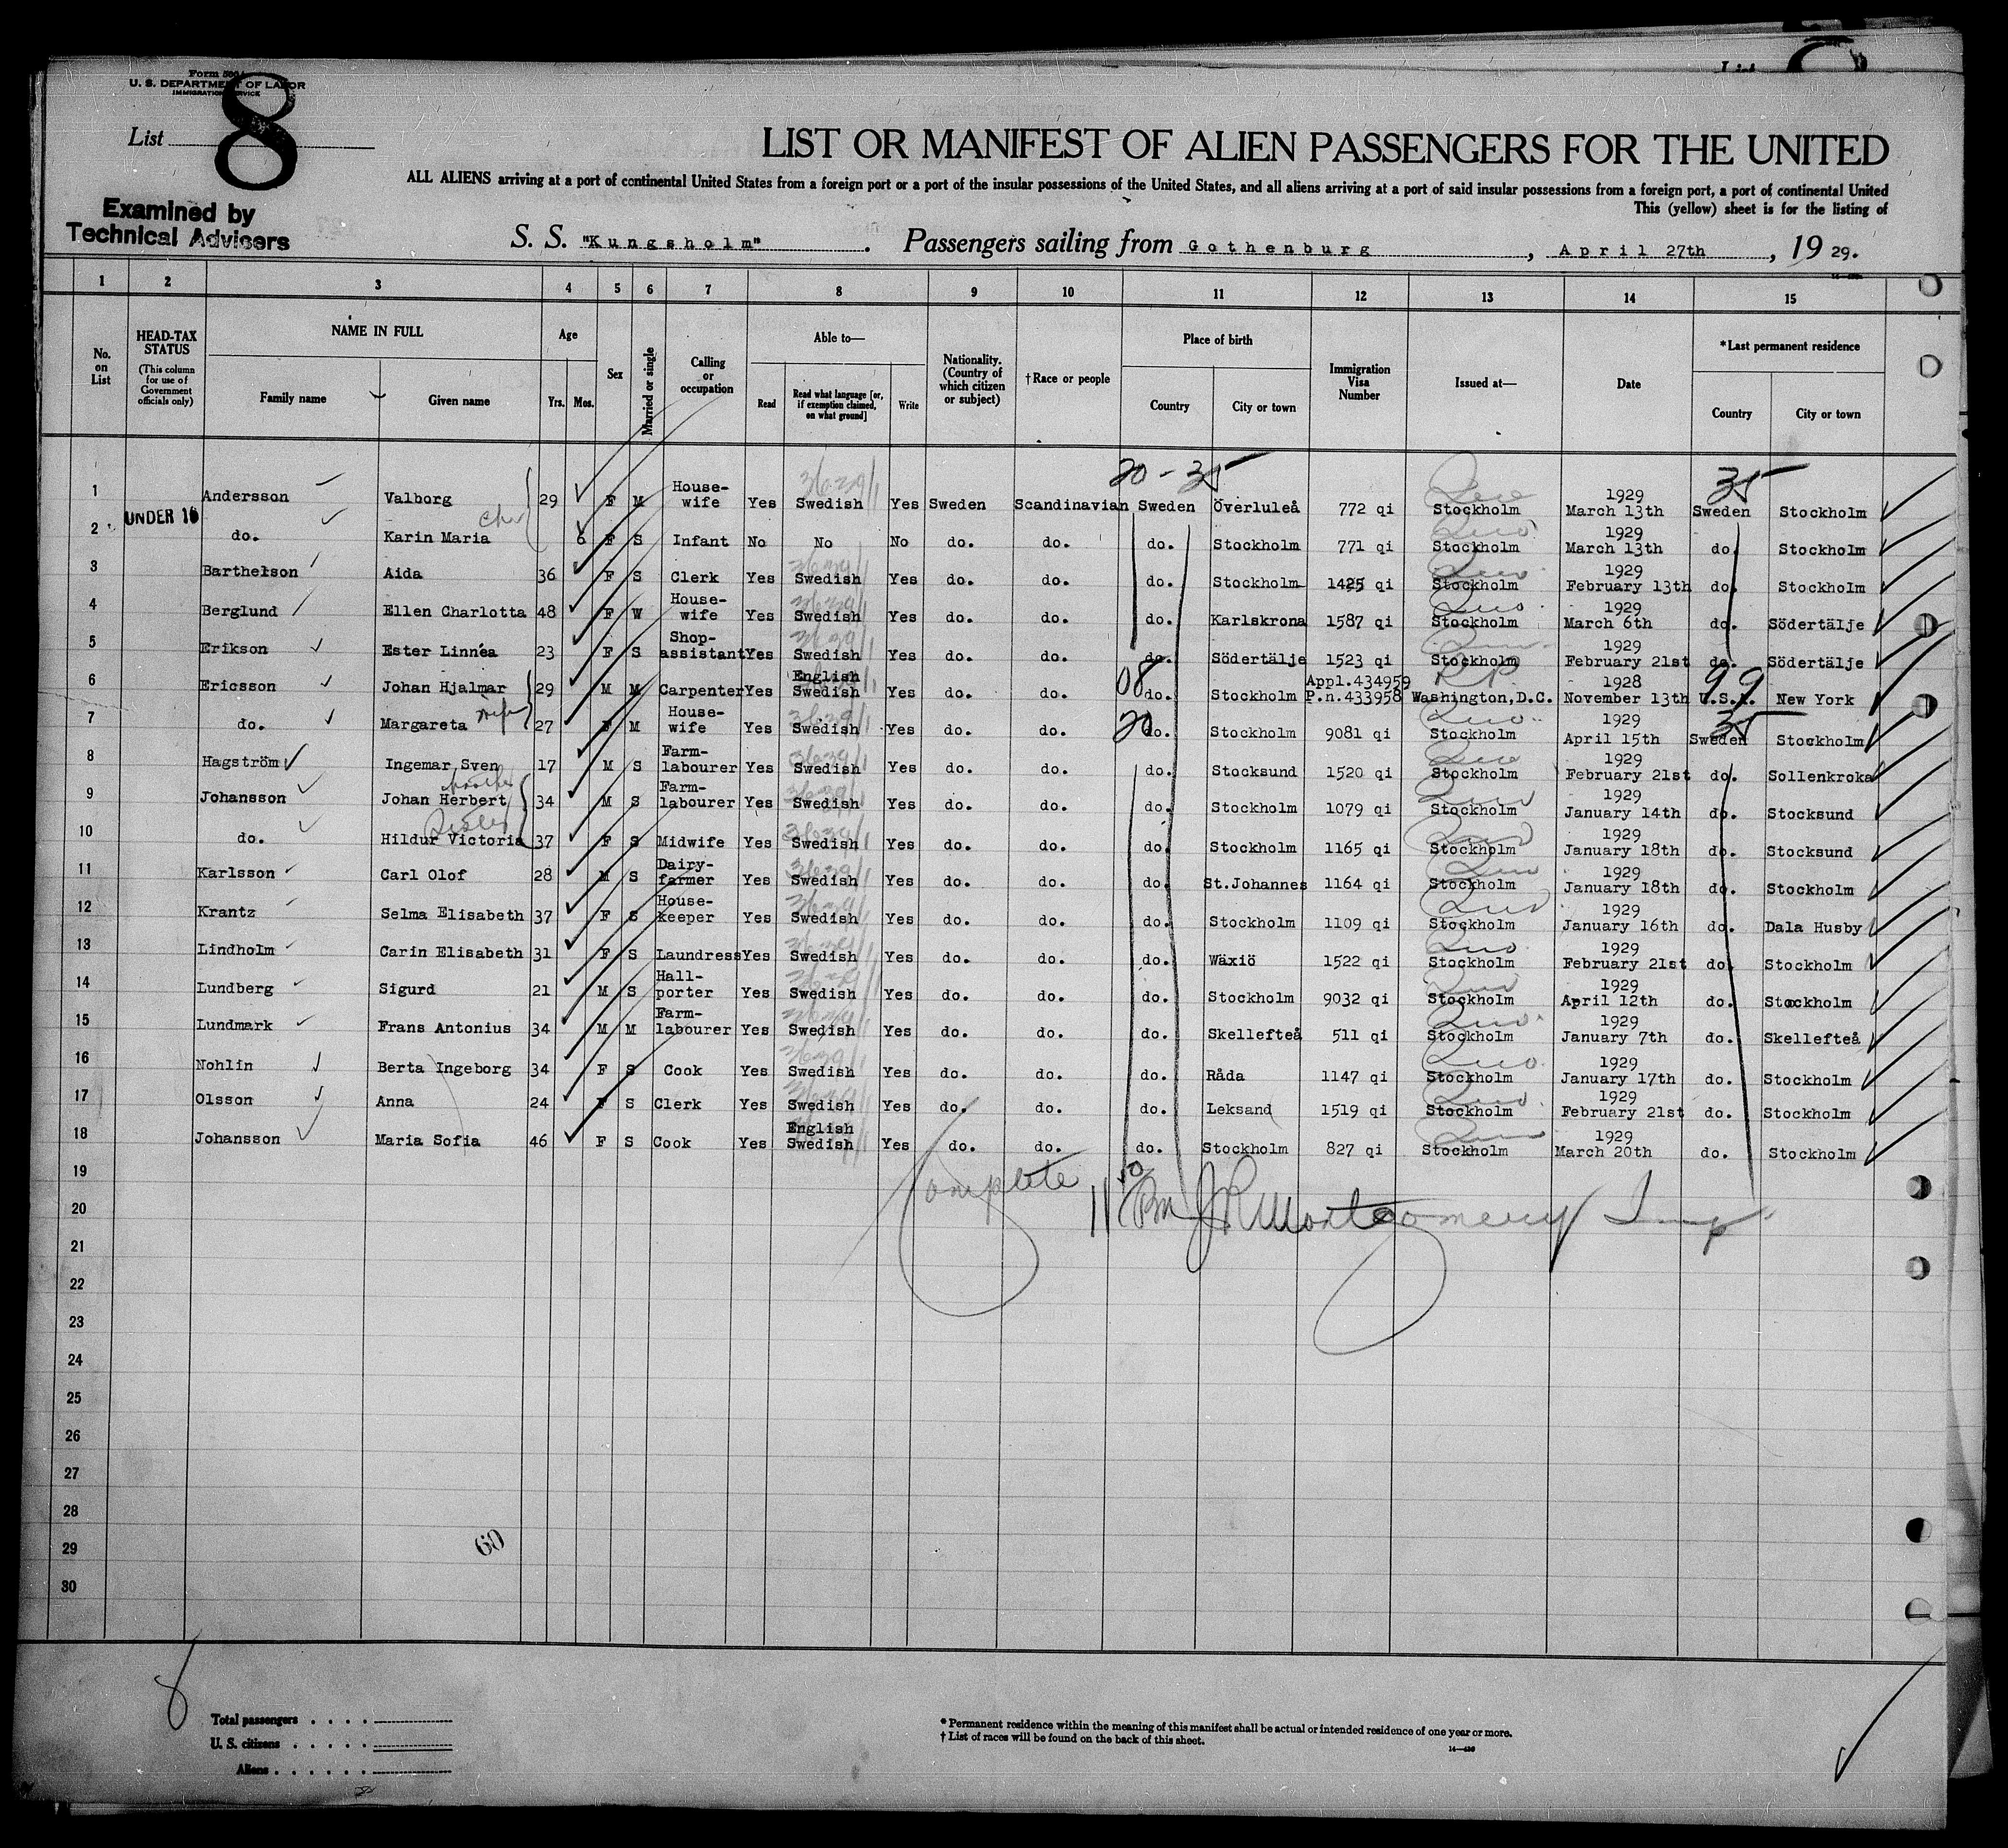 List
Form 500
U. S. DEPARTMENT OF LABOR
IMMIGRATION SERVICE
List 8
LIST OR MANIFEST OF ALIEN PASSENGERS FOR THE UNITED
ALL ALIENS arriving at a port of continental United States from a foreign port or a port of the insular possessions of the United States, and all aliens arriving at a port of said insular possessions from a foreign port, a port of continental United
This (yellow) sheet is for the listing of
Examined by
Technical Advisers
S. S. "Kungsholm". Passengers sailing from Gothenburg, April 27th, 1929.
1 2 3 4 5 6 7 8 9 10 11 12 13 14 15
No. on List
HEAD-TAX STATUS (This column for use of Government officials only)
NAME IN FULL Family name Given name
Age Yrs. Mos.
Sex
Married or single
Calling or occupation
Able to— Read Read what language [or, if exemption claimed, on what ground] Write
Nationality. (Country of which citizen or subject)
†Race or people
Place of birth Country City or town
Immigration Visa Number
Issued at—
Date
*Last permanent residence Country City or town
20-35 35
1 Andersson Valborg 29 F M House-wife Yes Swedish Yes Sweden Scandinavian Sweden Överluleå 772 qi Stockholm 1929 March 13th Sweden Stockholm
2 UNDER 16 do. Karin Maria 6 F S Infant No No No do. do. do. Stockholm 771 qi Stockholm 1929 March 13th do. Stockholm
3 Barthelson Aida 36 F S Clerk Yes Swedish Yes do. do. do. Stockholm 1425 qi Stockholm 1929 February 13th do. Stockholm
4 Berglund Ellen Charlotta 48 F W House-wife Yes Swedish Yes do. do. do. Karlskrona 1587 qi Stockholm 1929 March 6th do. Södertälje
5 Erikson Ester Linnéa 23 F S Shop-assistant Yes Swedish Yes do. do. do. Södertälje 1523 qi Stockholm 1929 February 21st do. Södertälje
6 Ericsson Johan Hjalmar 29 M M Carpenter Yes English Swedish Yes do. do. 08 do. Stockholm Appl.434959 P.n.433958 Washington,D.C. 1928 November 13th U.S.A. 99 New York
7 do. Margareta wife 27 F M House-wife Yes Swedish Yes do. do. 20 do. Stockholm 9081 qi Stockholm 1929 April 15th Sweden 35 Stockholm
8 Hagström Ingemar Sven 17 M S Farm-labourer Yes Swedish Yes do. do. do. Stocksund 1520 qi Stockholm 1929 February 21st do. Sollenkroka
9 Johansson Johan Herbert brother 34 M S Farm-labourer Yes Swedish Yes do. do. do. Stockholm 1079 qi Stockholm 1929 January 14th do. Stocksund
10 do. Hildur Victoria Sister 37 F S Midwife Yes Swedish Yes do. do. do. Stockholm 1165 qi Stockholm 1929 January 18th do. Stocksund
11 Karlsson Carl Olof 28 M S Dairy-farmer Yes Swedish Yes do. do. do. St.Johannes 1164 qi Stockholm 1929 January 18th do. Stockholm
12 Krantz Selma Elisabeth 37 F S House-keeper Yes Swedish Yes do. do. do. Stockholm 1109 qi Stockholm 1929 January 16th do. Dala Husby
13 Lindholm Carin Elisabeth 31 F S Laundress Yes Swedish Yes do. do. do. Wäxiö 1522 qi Stockholm 1929 February 21st do. Stockholm
14 Lundberg Sigurd 21 M S Hall-porter Yes Swedish Yes do. do. do. Stockholm 9032 qi Stockholm 1929 April 12th do. Stockholm
15 Lundmark Frans Antonius 34 M M Farm-labourer Yes Swedish Yes do. do. do. Skellefteå 511 qi Stockholm 1929 January 7th do. Skellefteå
16 Nohlin Berta Ingeborg 34 F S Cook Yes Swedish Yes do. do. do. Råda 1147 qi Stockholm 1929 January 17th do. Stockholm
17 Olsson Anna 24 F S Clerk Yes Swedish Yes do. do. do. Leksand 1519 qi Stockholm 1929 February 21st do. Stockholm
18 Johansson Maria Sofia 46 F S Cook Yes English Swedish Yes do. do. do. Stockholm 827 qi Stockholm 1929 March 20th do. Stockholm
19
Complete 11 50 Pm J R Montgomery Insp
20
21
22
23
24
25
26
27
28
29
60
30
8
Total passengers
U. S. citizens
Aliens
* Permanent residence within the meaning of this manifest shall be actual or intended residence of one year or more.
† List of races will be found on the back of this sheet.